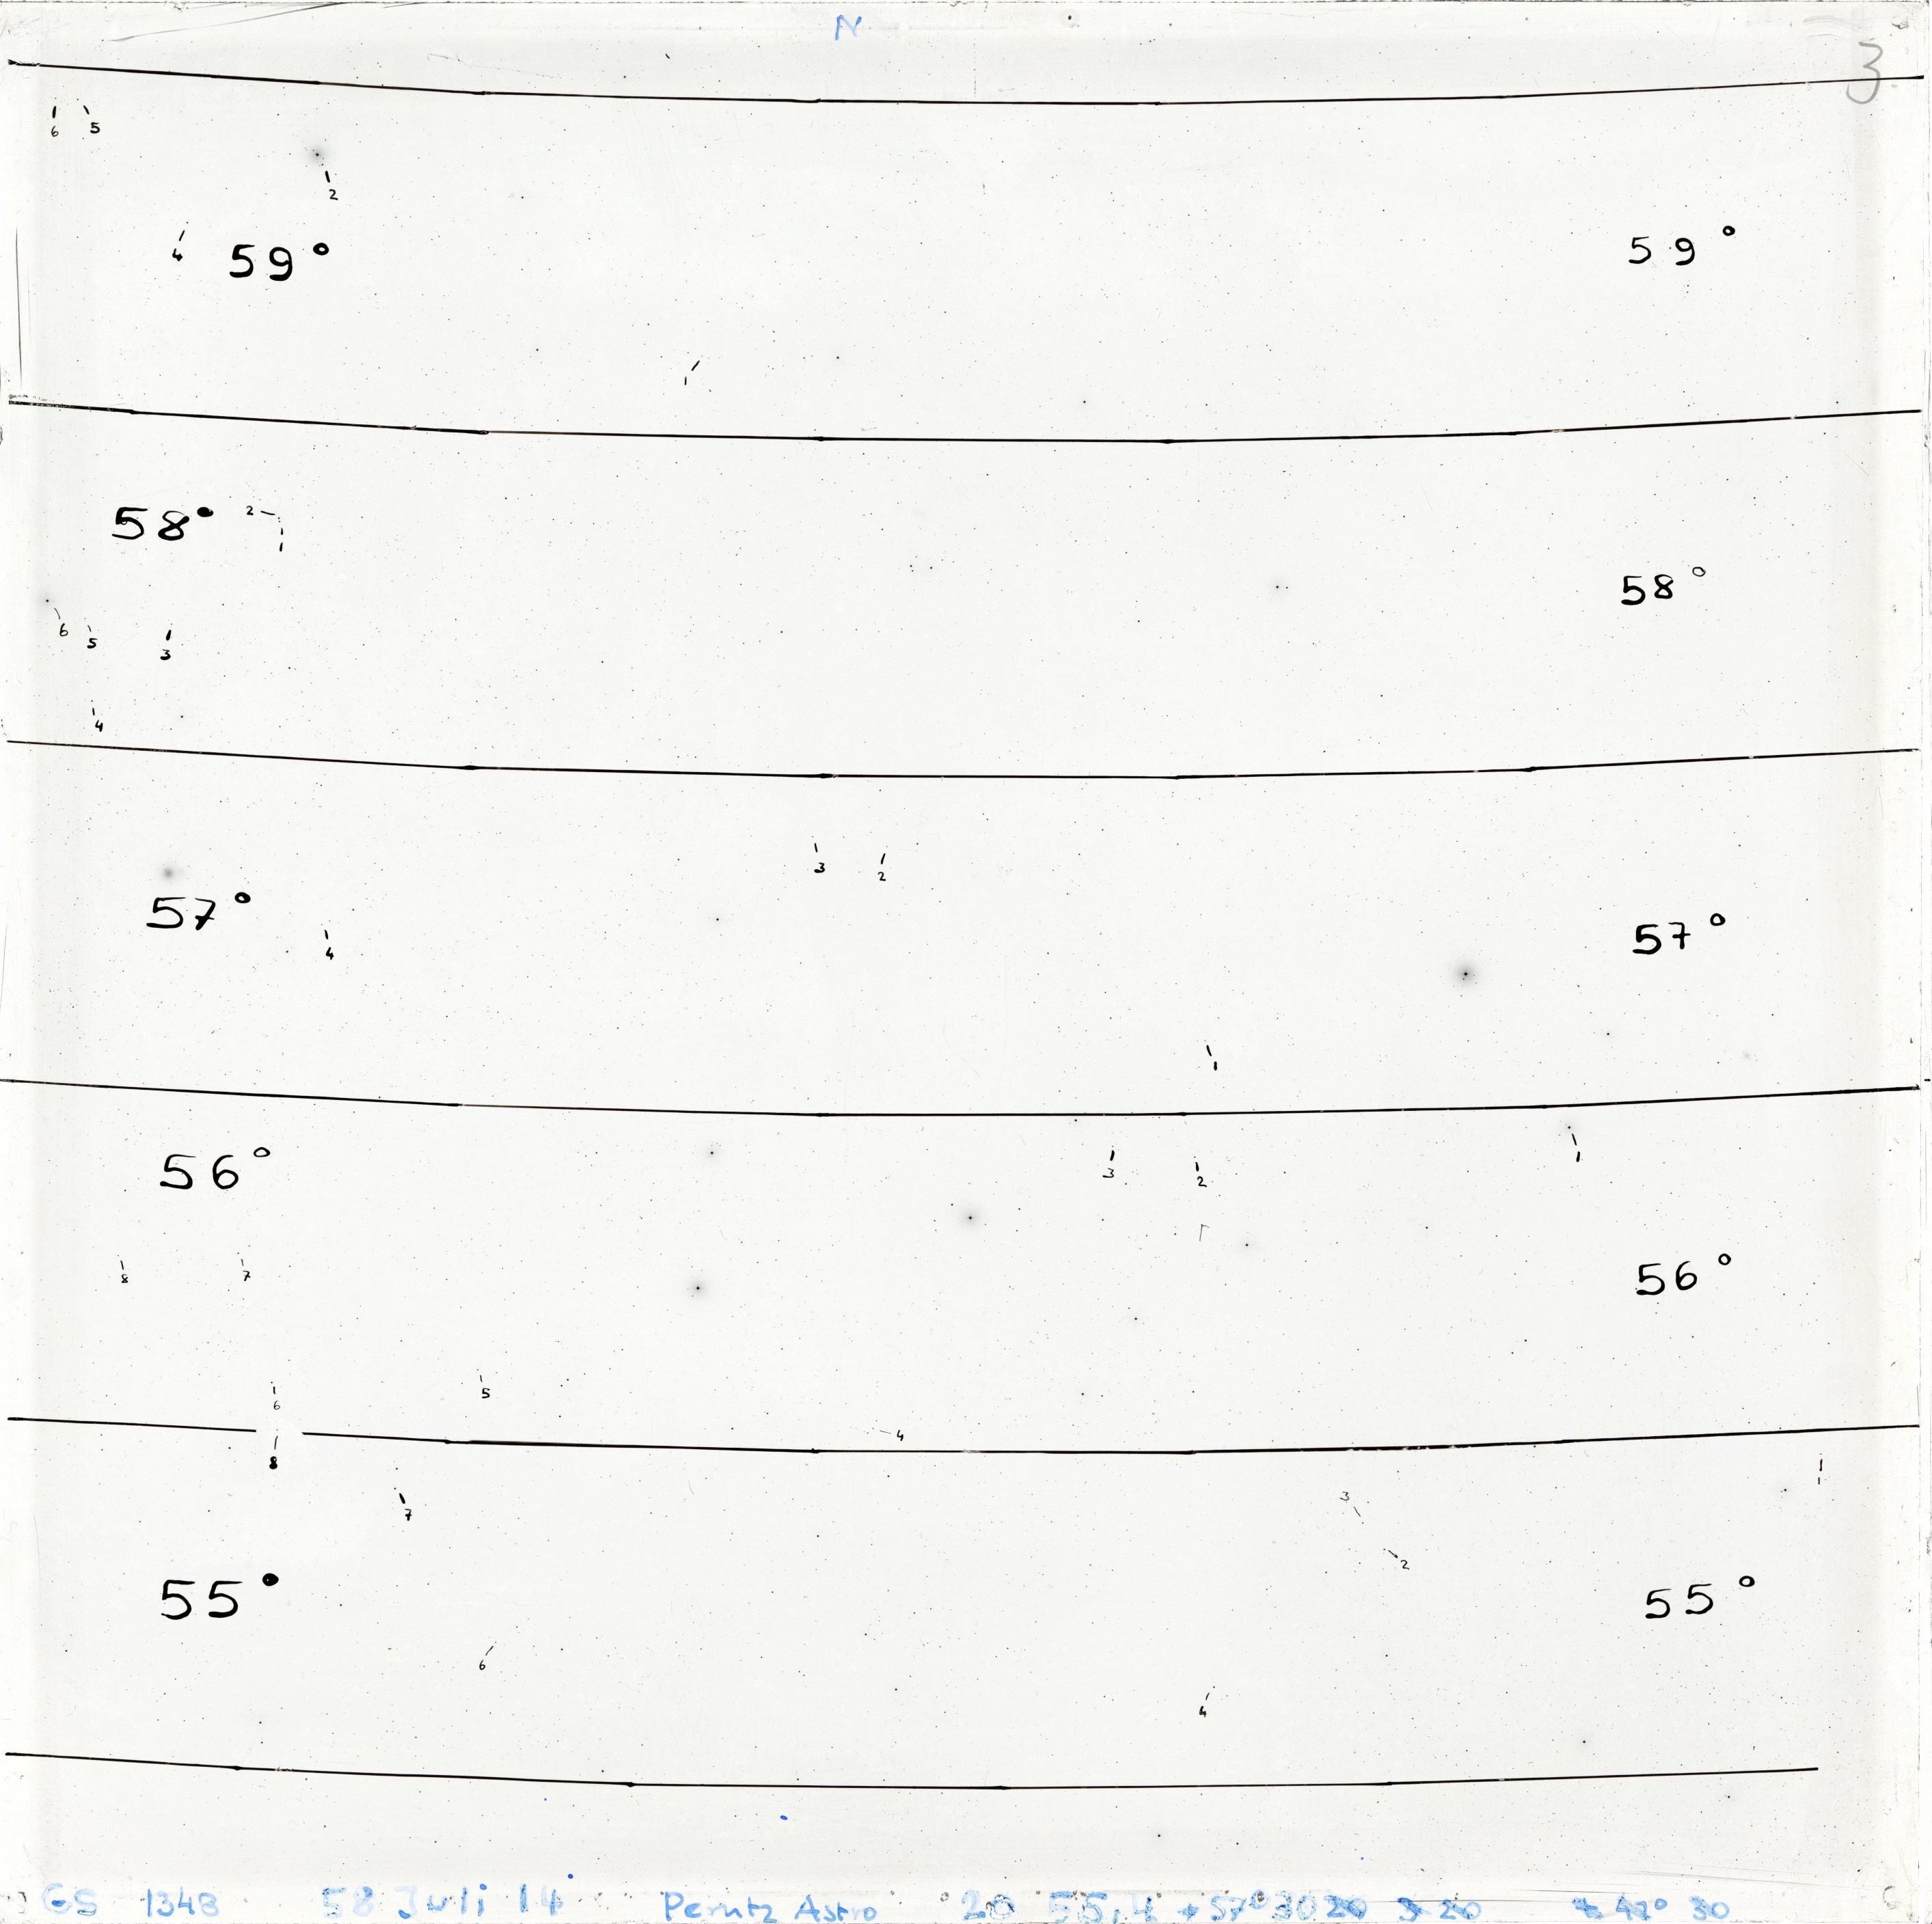 N
3
6 5
2
4 59° 59°
1
58° 2 58°
1
6 5 3
4
3 2
57° 4 57°
1
56° 3 2 1
8 7 56°
6 5
4
8
7 3 1
2
55° 55°
6
4
GS 1348 58 Juli 14 Perutz Astro 20 55,4 +57° 30